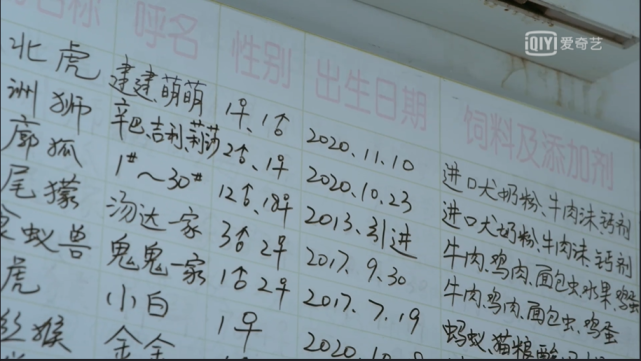 iQIYI 爱奇艺
名称 呼名 性别 出生日期 饲料及添加剂
北虎 建建、萌萌 1♀、1♂ 2020.11.10 进口犬奶粉、牛肉沫、钙剂
洲狮 辛巴、吉利、莉莎 2♂、1♀ 2020.10.23 进口犬奶粉、牛肉沫、钙剂
廓狐 1#~30# 12♂、18♀ 2013.引进 牛肉、鸡肉、面包虫、水果、鸡蛋
尾獴 汤达一家 3♂ 2♀ 2017.9.30 牛肉、鸡肉、面包虫、鸡蛋
食蚁兽 鬼鬼一家 1♂ 2♀ 2017.7.19 蚂蚁、猫粮、酸
虎 小白 1♀
丝猴 金金